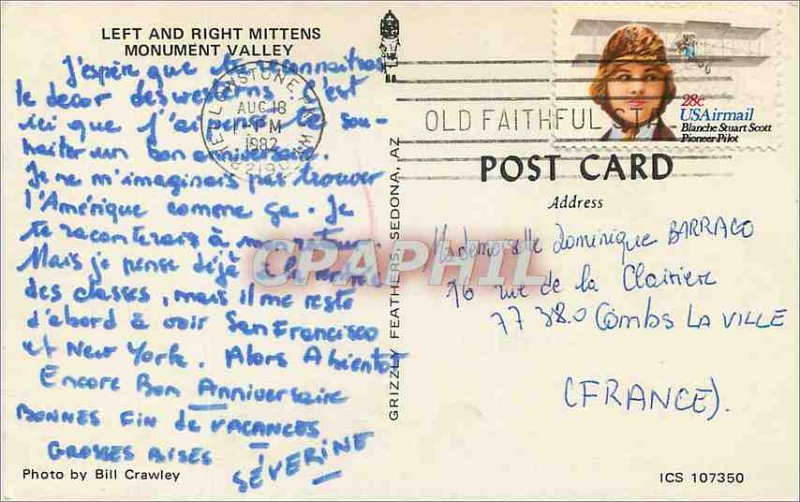 LEFT AND RIGHT MITTENS
MONUMENT VALLEY
J'espère que tu reconnaitras
le decor des westerns. C'est
ici que j'ai pensé te sou-
haiter un bon anniversaire.
Je ne m'imaginais pas trouver
l'Amérique comme ça. Je
te raconterais à mon retour.
Mais je pense déjà à la rentrée
des classes, mais il me reste
d'abord à voir San Francisco
et New York. Alors A bientôt
Encore Bon Anniversaire
BONNES FIN de VACANCES
GROSSES BISES
SÉVERINE
Photo by Bill Crawley
GRIZZLY FEATHERS, SEDONA, AZ
YELLOWSTONE
AUG 18
PM
1982
OLD FAITHFUL STA
28c
USAirmail
Blanche Stuart Scott
Pioneer Pilot
POST CARD
Address
Mademoiselle Dominique BARRACO
16 rue de la Clairière
77380 Combs LA VILLE
(FRANCE).
ICS 107350
CPAPHIL